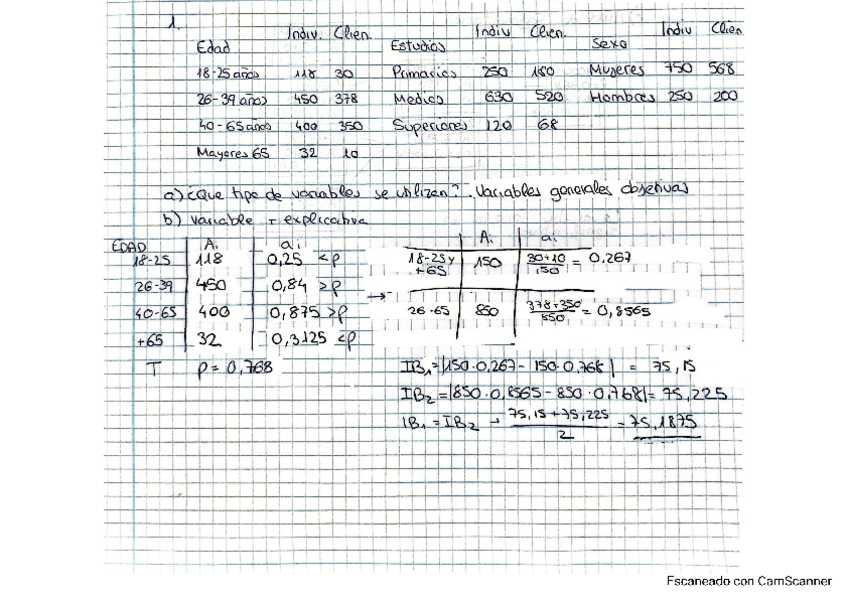 1.
Edad Indiv. Clien. Estudios Indiv Clien. Sexo Indiv Clien
18-25 años 118 30 Primarios 250 180 Mujeres 750 568
26-39 años 450 378 Medios 630 520 Hombres 250 200
40-65 años 400 350 Superiores 120 68
Mayores 65 32 10
a) ¿Que tipo de variables se utilizen? . Variables generales objetivas
b) Variable + explicativa
EDAD Ai ai
18-25 118 0,25 < p
26-39 450 0,84 > p
40-65 400 0,875 > p
+65 32 0,3125 < p
T p = 0,768
Ai ai
18-25 y +65 150 30+10/150 = 0,267
→ 26-65 850 378+350/850 = 0,8565
IB1 = |150·0,267 - 150·0,768| = 75,15
IB2 = |850·0,8565 - 850·0,768| = 75,225
IB1 = IB2 → 75,15+75,225/2 = 75,1875
Escaneado con CamScanner